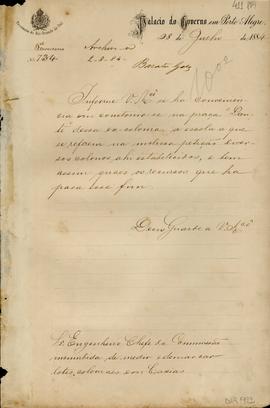 Palacio do Governo em Porto Alegre,
28 de Junho de 1884
N. 734
Informe V. Mcê se ha convenien-
cia em construir-se na praça "Dan-
te" dessa ex-colonia, a escola a que
se referem na inclusa petição diver-
sos colonos ahi estabelecidos, e bem
assim quaes os recursos que ha
para esse fim.
Deus Guarde a V. Mcê
Sr. Engenheiro Chefe da Commissão
incumbida de medir e demarcar
lotes coloniaes em Caxias